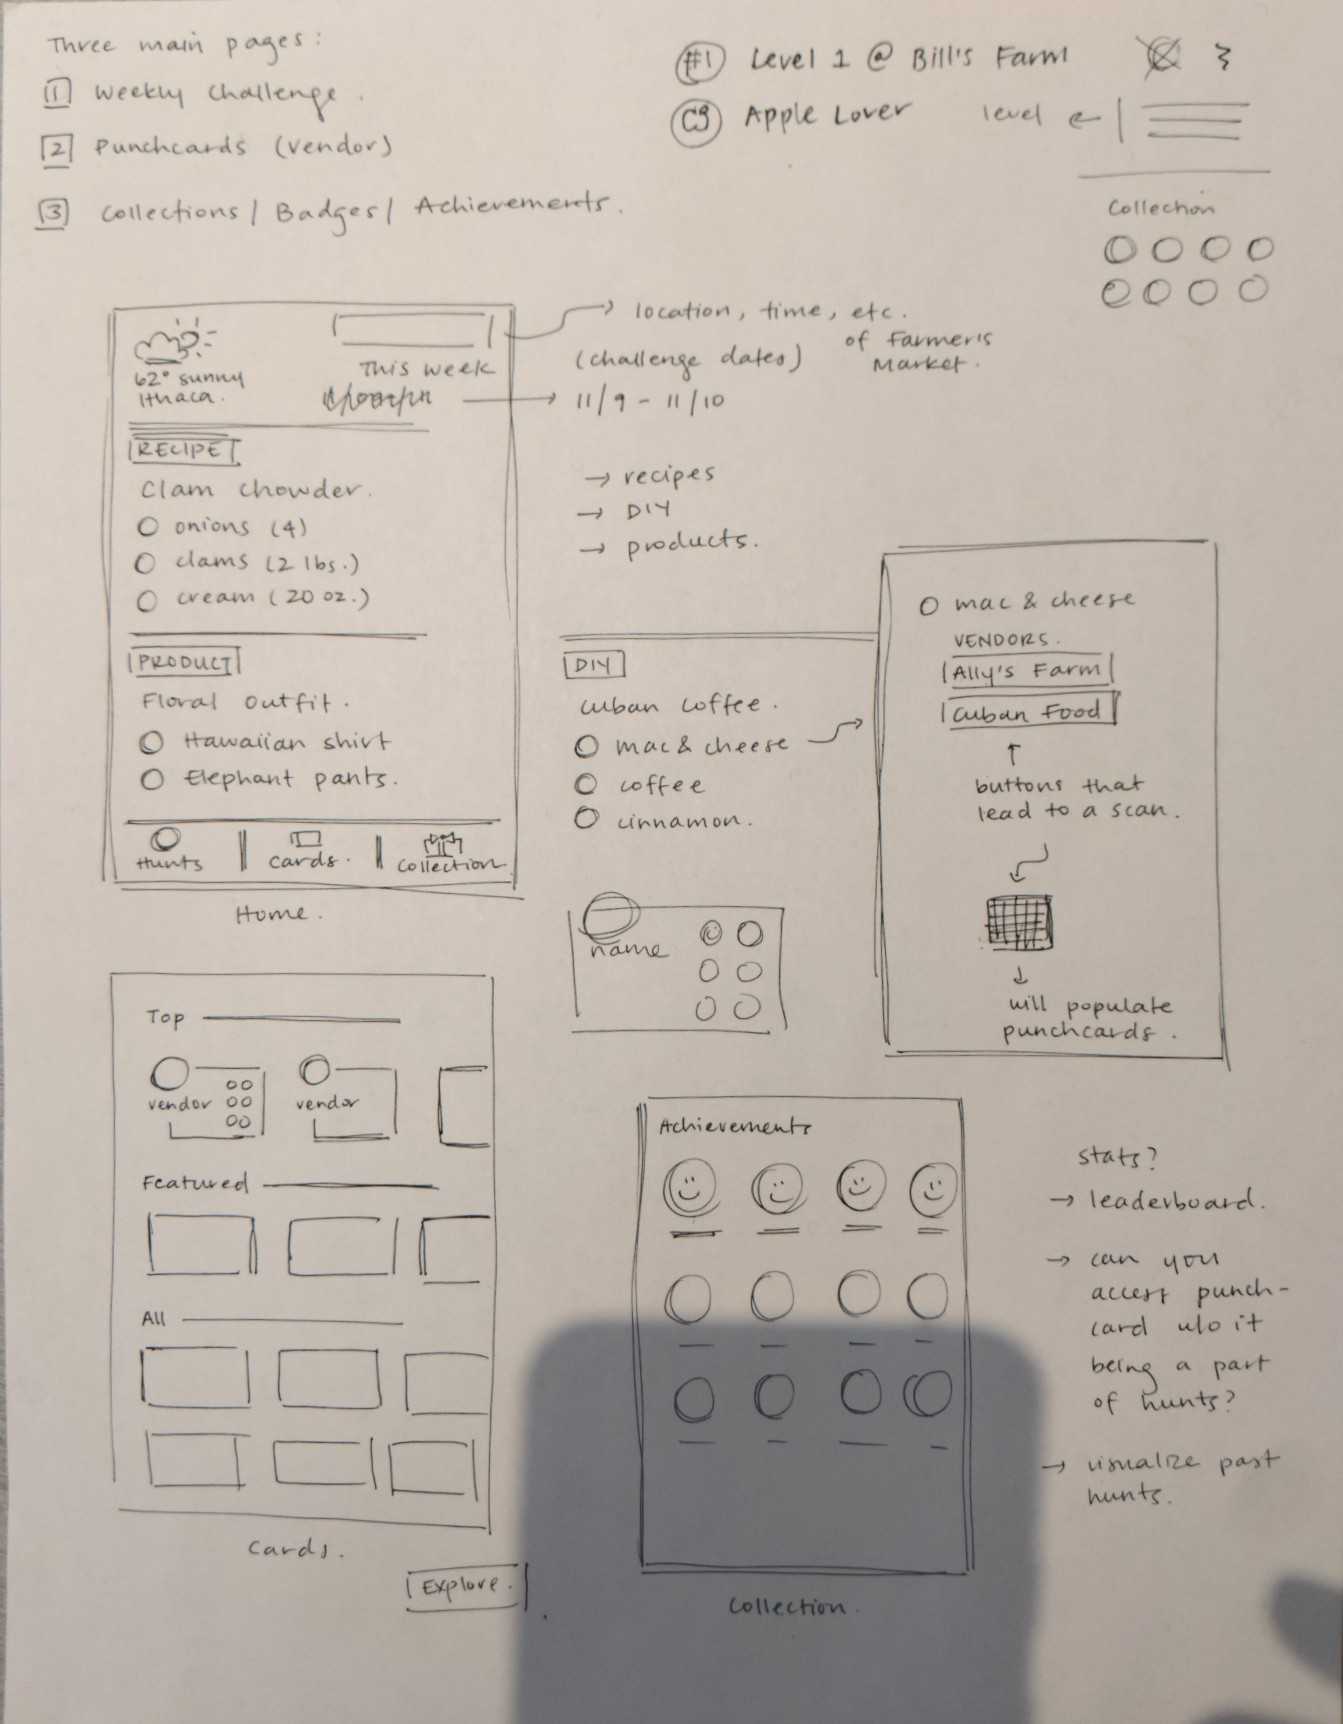 Three main pages:
1 Weekly Challenge.
2 Punchcards (vendor)
3 Collections / Badges / Achievements.
#1 Level 1 @ Bill's Farm
Apple Lover
level
Collection
62° sunny
Ithaca.
This week
location, time, etc.
of Farmer's
Market.
(challenge dates)
11/9 - 11/10
RECIPE
Clam chowder.
onions (4)
clams (2 lbs.)
cream (20 oz.)
PRODUCT
Floral outfit.
Hawaiian shirt
Elephant pants.
Hunts
Cards.
Collection
Home.
→ recipes
→ DIY
→ products.
DIY
Cuban coffee.
mac & cheese
coffee
cinnamon.
mac & cheese
VENDORS.
Ally's Farm
Cuban Food
buttons that
lead to a scan.
will populate
punchcards.
name
Top
vendor
vendor
Featured
All
Cards.
Explore.
Achievements
Collection.
stats?
→ leaderboard.
→ can you
access punch-
card w/o it
being a part
of hunts?
→ visualize past
hunts.